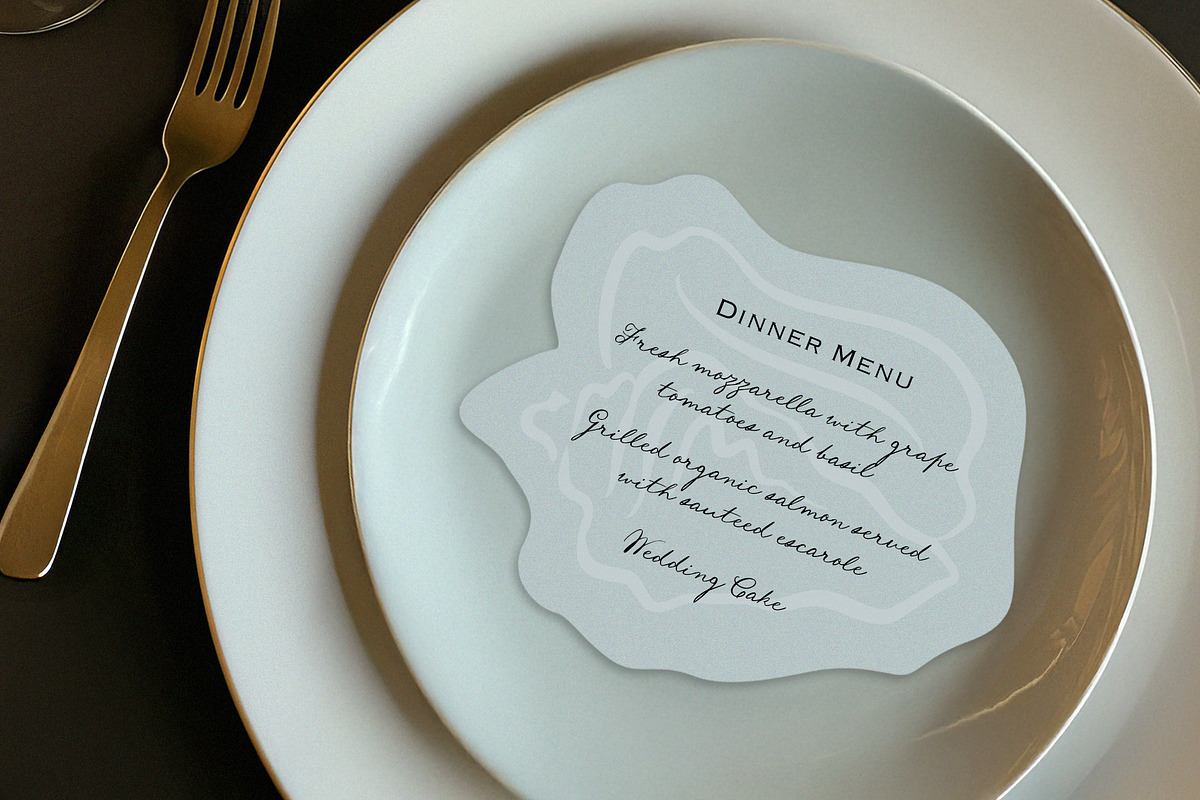 DINNER MENU
Fresh mozzarella with grape
tomatoes and basil
Grilled organic salmon served
with sauteed escarole
Wedding Cake